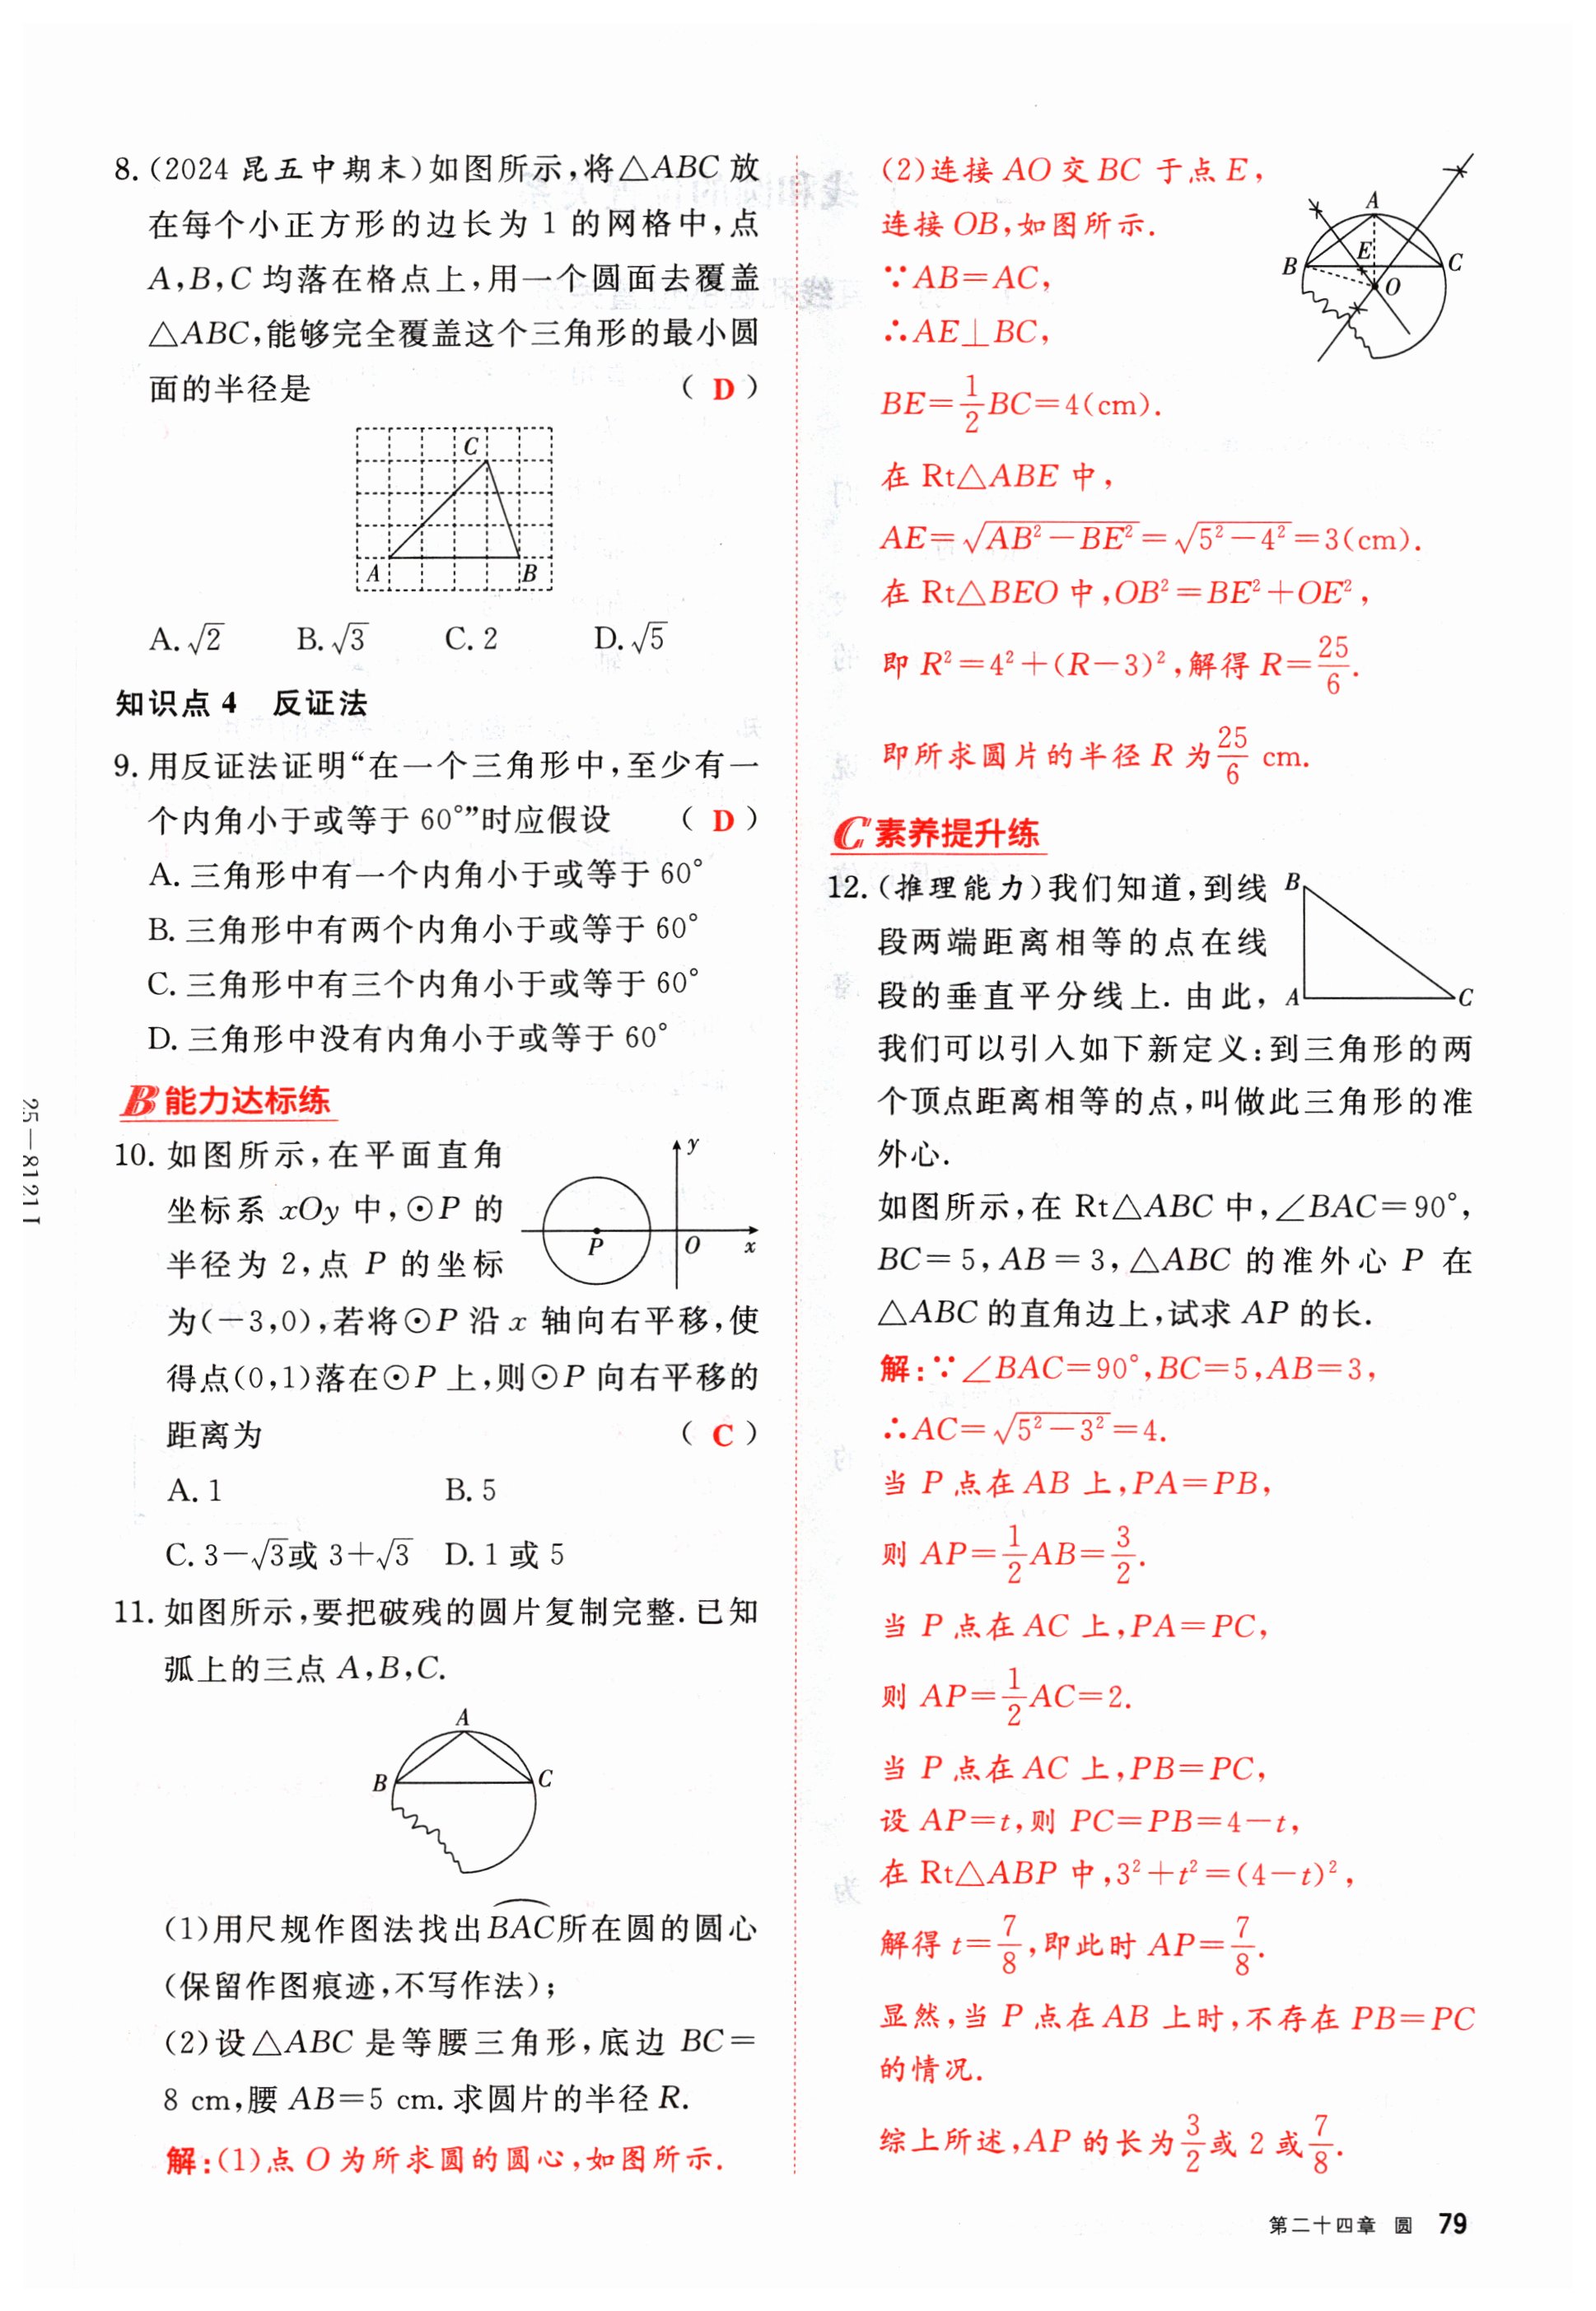 8.(2024 昆五中期末)如图所示,将△ABC 放
在每个小正方形的边长为 1 的网格中,点
A,B,C 均落在格点上,用一个圆面去覆盖
△ABC,能够完全覆盖这个三角形的最小圆
面的半径是 ( D )
C
A B
A.√2 B.√3 C.2 D.√5
知识点 4 反证法
9.用反证法证明“在一个三角形中,至少有一
个内角小于或等于 60°”时应假设 ( D )
A.三角形中有一个内角小于或等于 60°
B.三角形中有两个内角小于或等于 60°
C.三角形中有三个内角小于或等于 60°
D.三角形中没有内角小于或等于 60°
B 能力达标练
10.如图所示,在平面直角
坐标系 xOy 中,⊙P 的
半径为 2,点 P 的坐标
y
P O x
为(-3,0),若将⊙P 沿 x 轴向右平移,使
得点(0,1)落在⊙P 上,则⊙P 向右平移的
距离为 ( C )
A.1 B.5
C.3-√3或 3+√3 D.1 或 5
11.如图所示,要把破残的圆片复制完整.已知
弧上的三点 A,B,C.
A
B C
(1)用尺规作图法找出⌒BAC所在圆的圆心
(保留作图痕迹,不写作法);
(2)设△ABC 是等腰三角形,底边 BC=
8 cm,腰 AB=5 cm.求圆片的半径 R.
解:(1)点 O 为所求圆的圆心,如图所示.
(2)连接 AO 交 BC 于点 E,
连接 OB,如图所示.
A
E
B C
O
∵AB=AC,
∴AE⊥BC,
BE=1/2BC=4(cm).
在 Rt△ABE 中,
AE=√(AB²-BE²)=√(5²-4²)=3(cm).
在 Rt△BEO 中,OB²=BE²+OE²,
即 R²=4²+(R-3)²,解得 R=25/6.
即所求圆片的半径 R 为25/6 cm.
C 素养提升练
12.(推理能力)我们知道,到线
段两端距离相等的点在线
段的垂直平分线上.由此,
B
A C
我们可以引入如下新定义:到三角形的两
个顶点距离相等的点,叫做此三角形的准
外心.
如图所示,在 Rt△ABC 中,∠BAC=90°,
BC=5,AB=3,△ABC 的准外心 P 在
△ABC 的直角边上,试求 AP 的长.
解:∵∠BAC=90°,BC=5,AB=3,
∴AC=√(5²-3²)=4.
当 P 点在 AB 上,PA=PB,
则 AP=1/2AB=3/2.
当 P 点在 AC 上,PA=PC,
则 AP=1/2AC=2.
当 P 点在 AC 上,PB=PC,
设 AP=t,则 PC=PB=4-t,
在 Rt△ABP 中,3²+t²=(4-t)²,
解得 t=7/8,即此时 AP=7/8.
显然,当 P 点在 AB 上时,不存在 PB=PC
的情况.
综上所述,AP 的长为3/2或 2 或7/8.
第二十四章 圆 79